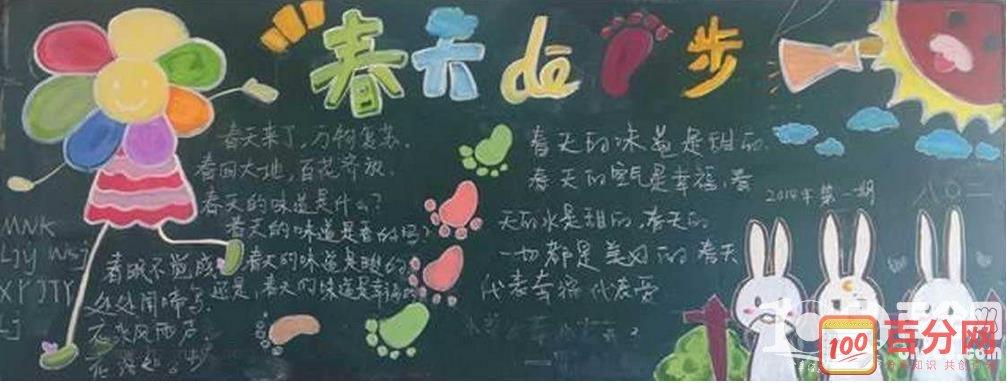 春天de 步
春天来了,万物复苏.
春回大地,百花齐放.
春天的味道是什么?
春天的味道是香的吗?
春天的味道是甜的
还是,春天的味道是幸福的
春眠不觉
处处闻啼鸟.
风雨声.
花落
春天的味道是甜的.
春天的空气是幸福,春
天的水是甜的,春天的
一切都是美好的 春天
代表 代表爱
第一期
八〇二
MNK
Ljy wsj
Lj
100
百分网
知识 共创